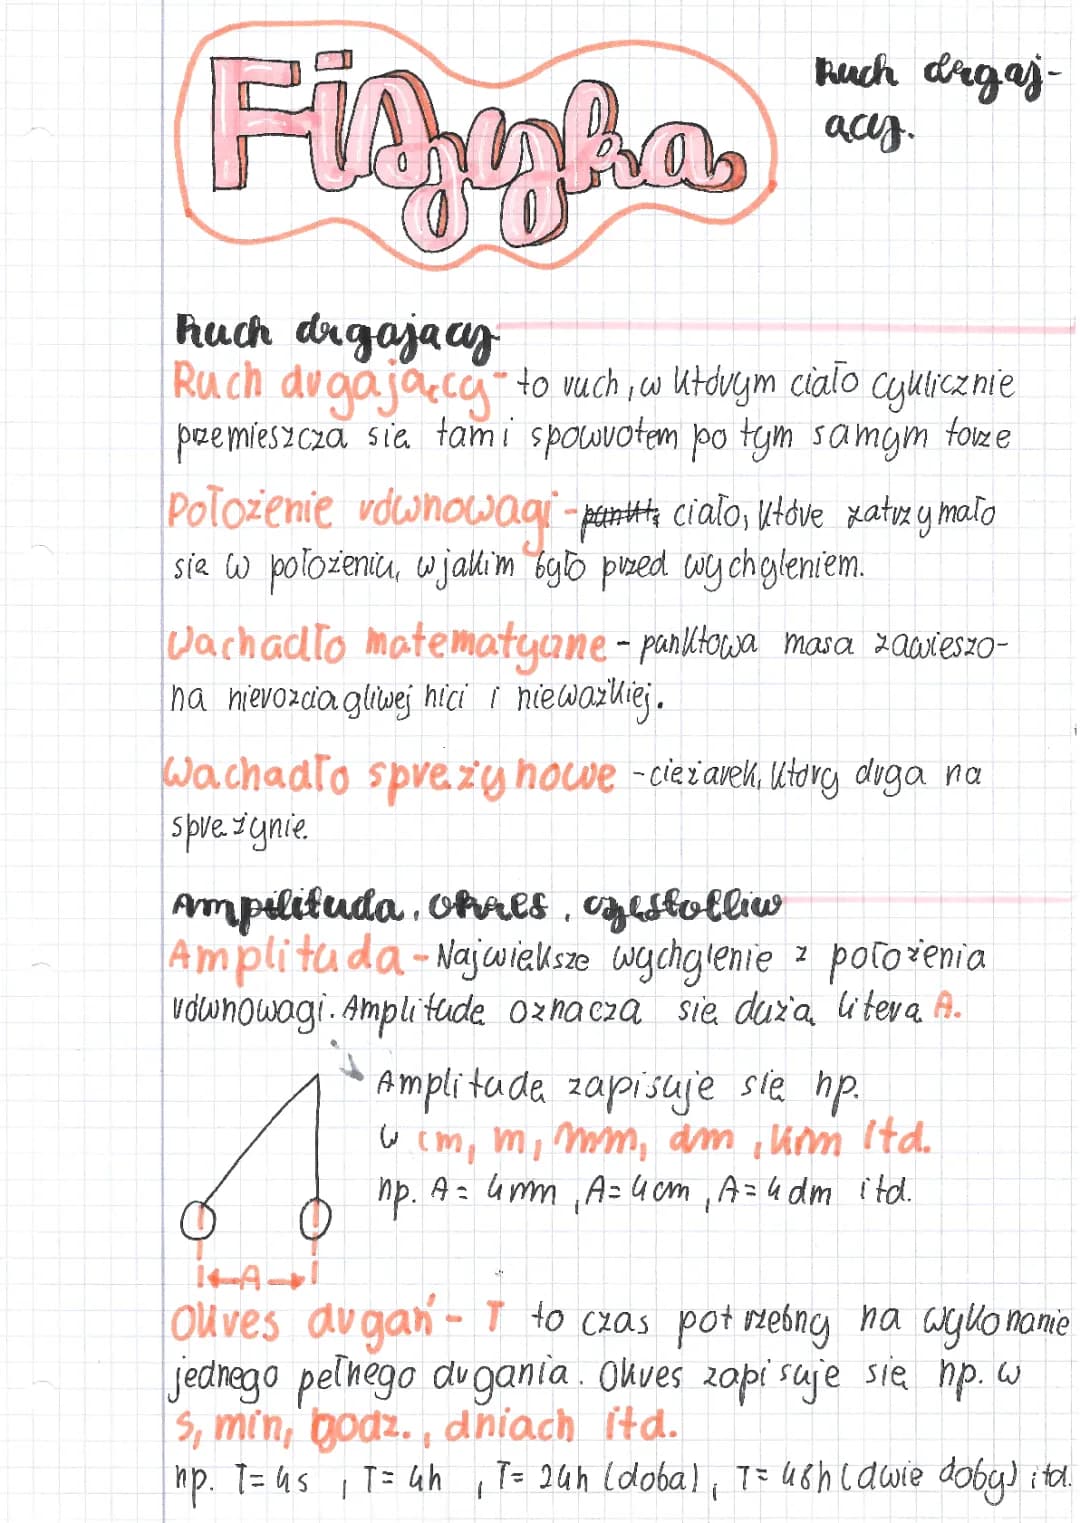 Fizyka
Ruch drgaj-
ący.
Ruch drgający
Ruch drgający - to ruch, w którym ciało cyklicznie
przemieszcza się tam i spowrotem po tym samym torze
Położenie równowagi - punktu ciało, które zatrzymało
się w położeniu, w jakim było przed wychyleniem.
Wachadło matematyczne - punktowa masa zawieszo-
na nierozciągliwej nici i nieważkiej.
Wachadło sprężynowe - ciężarek, który drga na
sprężynie.
Amplituda, okres, częstotliw
Amplituda - Największe wychylenie z położenia
równowagi. Amplitudę oznacza się dużą literą A.
Amplitudę zapisuje się np.
w cm, m, mm, dm, km itd.
np. A = 4mm, A = 4cm, A = 4dm itd.
A
Okres drgań - T to czas potrzebny na wykonanie
jednego pełnego drgania. Okres zapisuje się np. w
s, min, godz., dniach itd.
np. T = 4s, T = 4h, T = 24h (doba), T = 48h (dwie doby) itd.